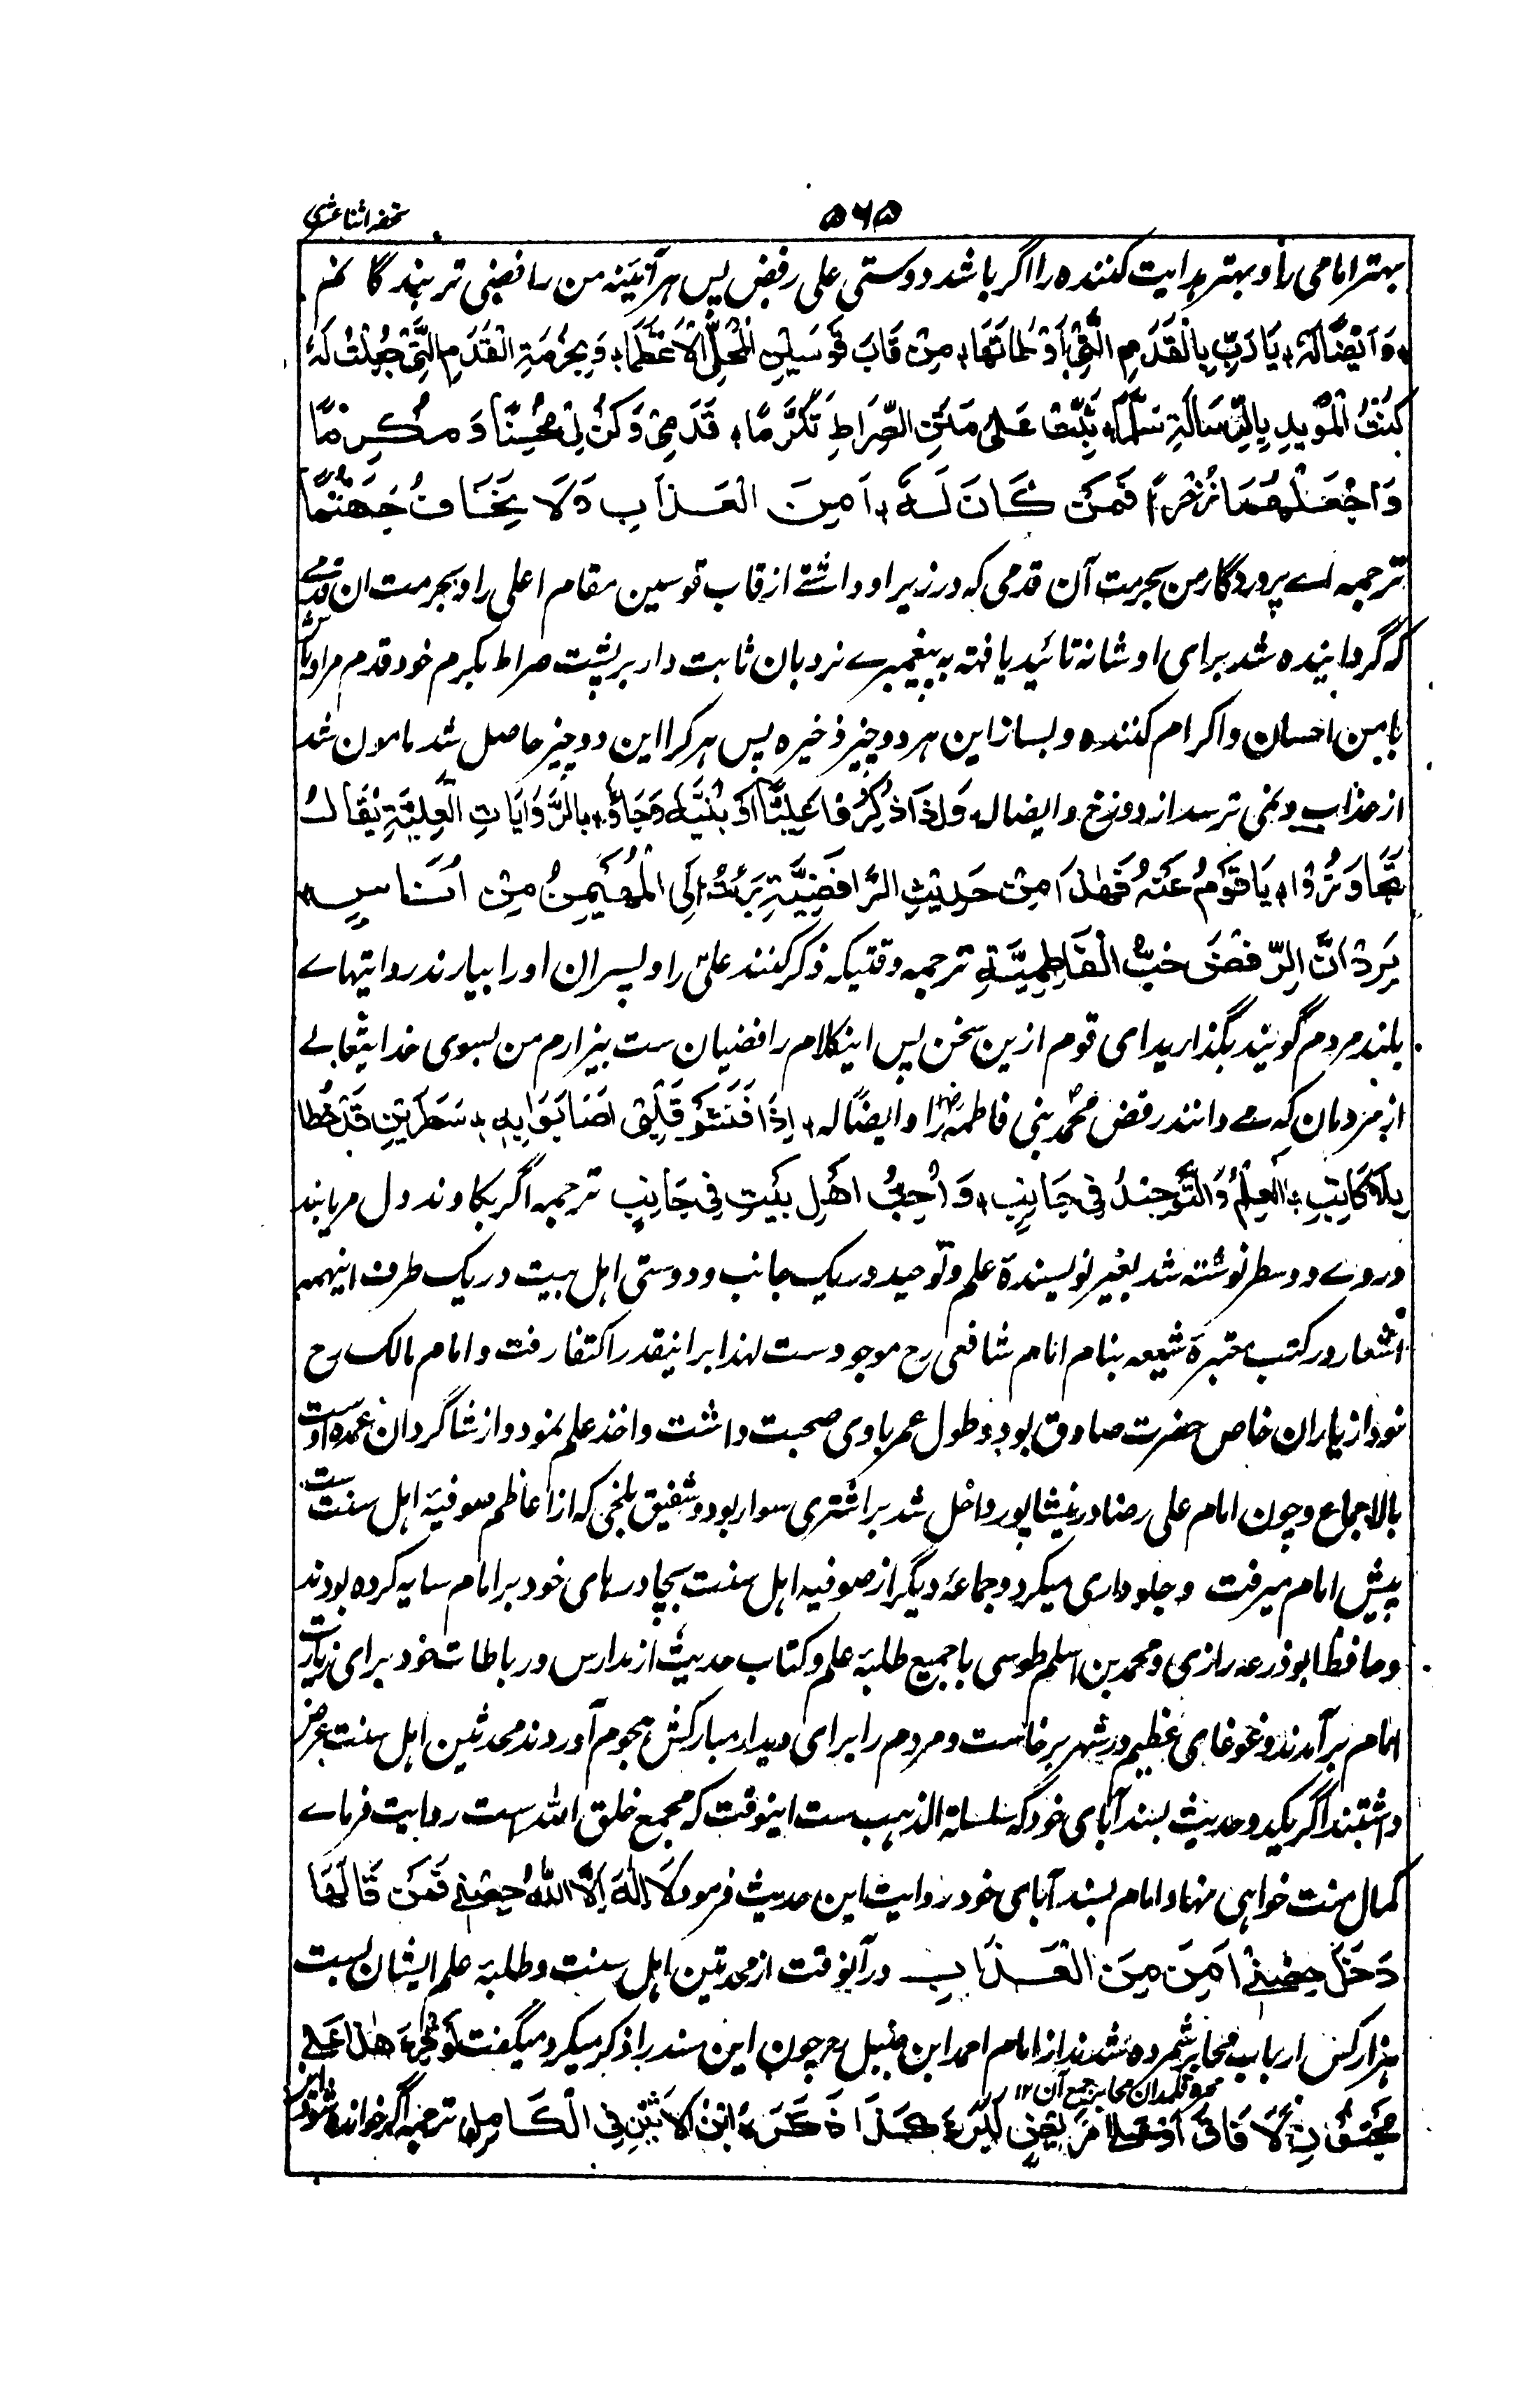 تحفه اثنا عشری
۵۶۵
بهتر امامی را و بهتر هدایت کننده را اگر باشد دوستی علی رفض پس هر آئینه من رافضی تر بندگانم
وَاَیْضًا لَهٗ یَا رَبِّ بِالْقَدَمِ الَّتِیْ اَوْطَاْتَهَا مِنْ قَابَ قَوْسَیْنِ الْمَحَلَّ الْاَعْظَمَا وَبِحُرْمَةِ الْقَدَمِ الَّتِیْ جُعِلَتْ لَهٗ
کِتْفُ الْمُؤَیَّدِ بِالرِّسَالَةِ سُلَّمَا ثَبِّتْ عَلٰی مَتْنِ الصِّرَاطِ تَکَرُّمًا قَدَمِیْ وَکُنْ لِیْ مُحْسِنًا وَ مُکْرِمًا
وَاجْعَلْهُمَا ذُخْرًا فَمَنْ کَانَ لَهٗ اَمِنَ الْعَذَابِ وَلَا یَخَافُ جَهَنَّمَا
ترجمه اے پروردگار من بحرمت آن قدمی که در زیر او داشتے از قاب قوسین مقام اعلی را و بحرمت ان قدمے
که گردانیده شد برای او شانه تائید یافته به پیغمبرے نردبان ثابت دار بر پشت صراط بکرم خود قدم مرا و باش
با من احسان و اکرام کننده و بساز این هر دو چیز ذخیره پس هر کرا این دو چیز حاصل شد مامون شد
از عذاب و نمی ترسد از دوزخ و ایضا له وَاِذَا ذَکَرُوْا عَلِیًّا اَوْ بُنَیْهِ وَجَاؤُا بِالرِّوَایَاتِ الْعَلِیَّةِ یُقَالُ
تَجَاوَزُوْا یَا قَوْمُ عَنْهُ فَهٰذَا مِنْ حَدِیْثِ الرَّافِضِیَّةِ بَرِئْتُ اِلَی الْمُهَیْمِنِ مِنْ اُنَاسٍ
یَرَوْنَ الرِّفْضَ حُبَّ الْفَاطِمِیَّةِ ترجمه وقتیکه ذکر کنند علی را و پسران او را بیارند روایتهاے
بلند مردم گویند بگذارید ای قوم ازین سخن پس اینکلام رافضیان ست بیزارم من بسوی خدایتعالے
از مردمان که مے دانند رفض محبت بنی فاطمه را و ایضًا له اِذَا فَتَّشُوْ قَلْبِیْ اَصَابُوَا بِهٖ سَطْرَیْنِ قَدْ خُطَّا
بِلَا کَاتِبِ اَلْعِلْمُ وَالتَّوْحِیْدُ فِیْ جَانِبٍ وَ حُبُّ اَهْلِ بَیْتٍ فِیْ جَانِبٍ ترجمه اگر بکاوند دل مرا یابند
در وے دو سطر نوشته شد بغیر نویسندهٔ علم و توحید در یک جانب و دوستی اهل بیت در یک طرف اینهمه
اشعار در کتب معتبرهٔ شیعه بنام امام شافعی رح موجودست لهذا برانیقدر اکتفا رفت و امام مالک رح
خود از یاران خاص حضرت صادق بود و طول عمر با وی صحبت داشت و اخذ علم نمود و از شاگردان عمده اوست
بالاجماع و چون امام علی رضا در نیشاپور داخل شد بر اشتری سوار بود و شفیق بلخی که از اعاظم صوفیهٔ اهل سنت ست
پیش امام میرفت و جلوداری میکرد و جماعهٔ دیگر از صوفیه اهل سنت بچادرهای خود بر امام سایه کرده بودند
و حافظ ابو ذرعه رازی و محمد بن اسلم طوسی با جمیع طلبهٔ علم و کتاب حدیث از مدارس و رباطات خود برای زیارت
امام برآمدند و غوغای عظیم در شهر برخاست و مردم را برای دیدار مبارکش هجوم آوردند محدثین اهل سنت عرض
داشتند اگر یکدو حدیث بسند آبای خود که سلسلة الذهب ست اینوقت که مجمع خلق الله ست روایت فرماے
کمال منت خواهی نهاد امام بسند آبای خود روایت این حدیث فرمود لَا اِلٰهَ اِلَّا اللّٰهُ حِصْنِیْ فَمَنْ قَالَهَا
دَخَلَ حِصْنِیْ اَمِنَ مِنَ الْعَذَابِ در آنوقت از محدثین اهل سنت و طلبهٔ علم ایشان بست
هزار کس ارباب محابر شمرده شدند از امام احمد ابن حنبل رح چون این سند را ذکر میکرد میگفت لَوْ قُرِئَ هٰذَا عَلٰی
محرر قلمدان محابر جمع آن ۱۲
مَجْنُوْنٍ لَاَفَاقَ اَوْ عَلٰی مَرِیْضٍ لَبَرِءَ هٰکَذَا ذَکَرَهٗ ابْنُ الْاَثِیْرِ فِی الْکَامِلِ ترجمه اگر خوانده شود این